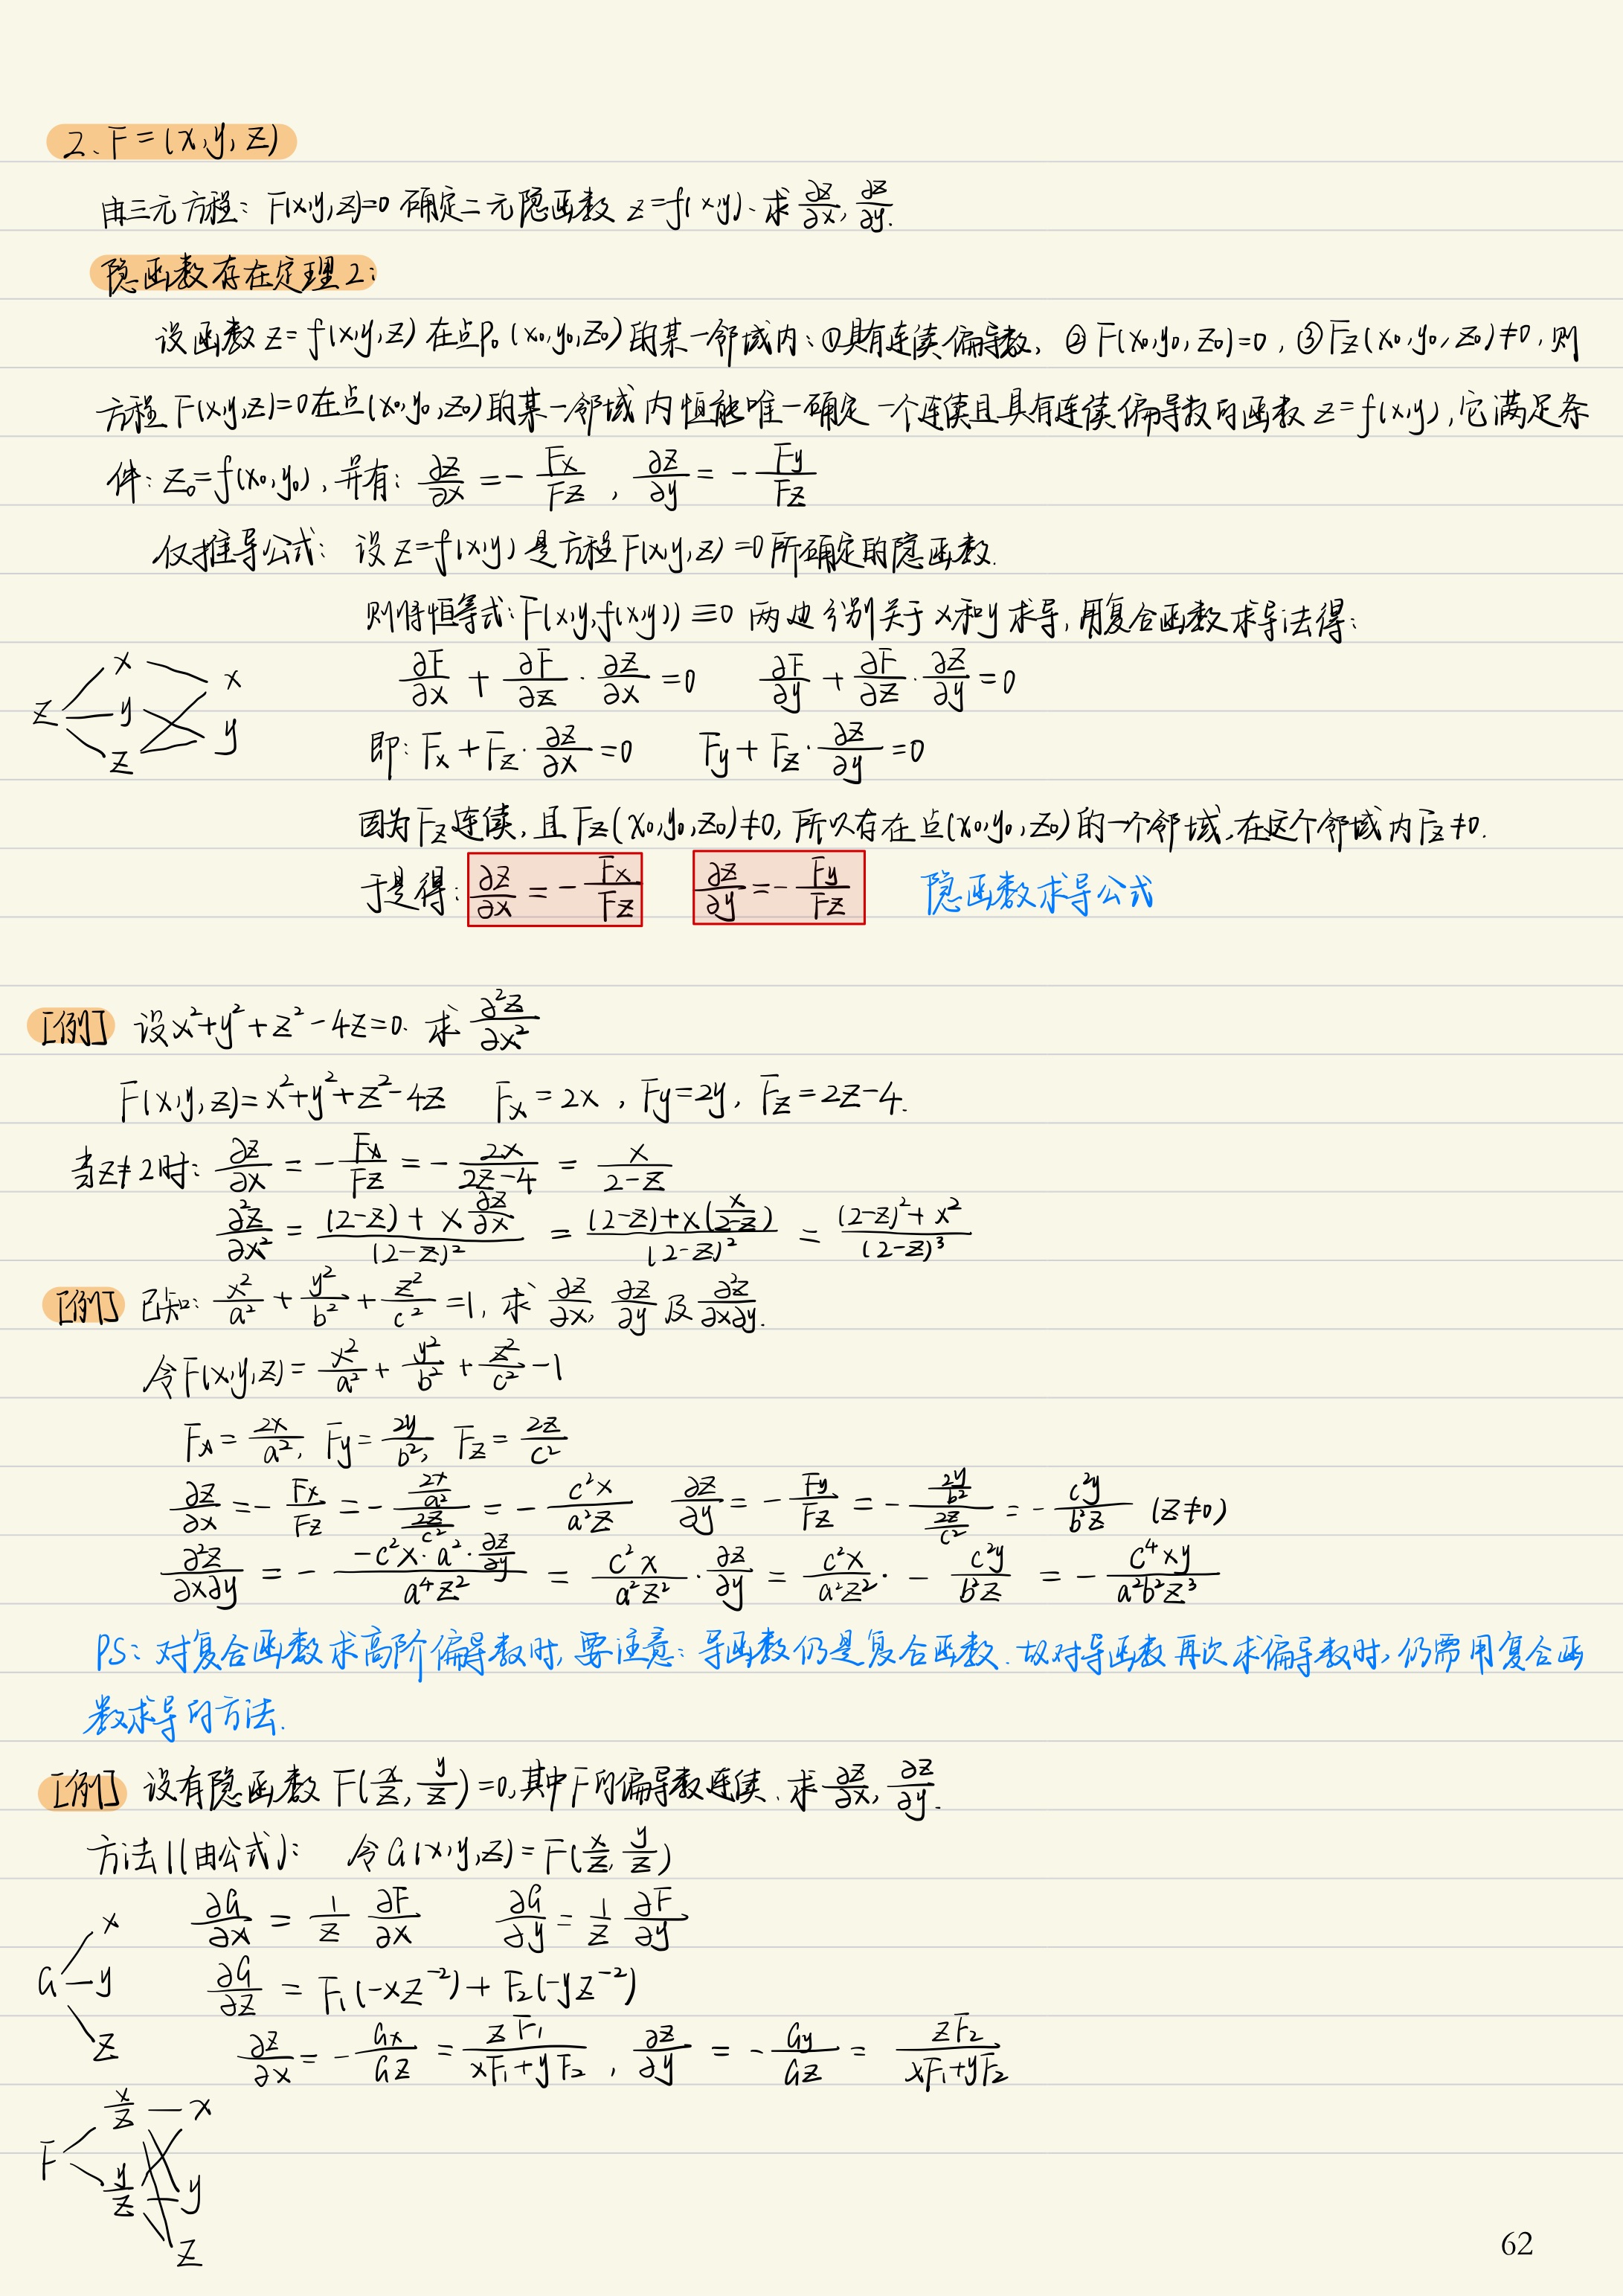 2、F=(x,y,z)
由三元方程：F(x,y,z)=0 确定二元隐函数 z=f(x,y)、求 ∂z/∂x, ∂z/∂y.
隐函数存在定理2：
设函数 z=f(x,y,z) 在点P₀(x₀,y₀,z₀)的某一邻域内：①具有连续偏导数，②F(x₀,y₀,z₀)=0，③Fz(x₀,y₀,z₀)≠0，则
方程 F(x,y,z)=0在点(x₀,y₀,z₀)的某一邻域内恒能唯一确定一个连续且具有连续偏导数的函数 z=f(x,y)，它满足条
件：z₀=f(x₀,y₀)，并有：∂z/∂x=-Fx/Fz，∂z/∂y=-Fy/Fz
仅推导公式： 设 z=f(x,y) 是方程 F(x,y,z)=0所确定的隐函数.
则将恒等式：F(x,y,f(x,y))≡0 两边分别关于 x和y 求导，用复合函数求导法得：
∂F/∂x + ∂F/∂z · ∂z/∂x =0 ∂F/∂y + ∂F/∂z · ∂z/∂y =0
z x y z x y
即：Fx+Fz·∂z/∂x=0 Fy+Fz·∂z/∂y=0
因为Fz连续，且Fz(x₀,y₀,z₀)≠0，所以存在点(x₀,y₀,z₀)的一个邻域，在这个邻域内Fz≠0.
于是得：∂z/∂x=-Fx/Fz ∂z/∂y=-Fy/Fz 隐函数求导公式
[例] 设x²+y²+z²-4z=0. 求 ∂²z/∂x²
F(x,y,z)=x²+y²+z²-4z Fx=2x，Fy=2y，Fz=2z-4.
当z≠2时：∂z/∂x = -Fx/Fz = -2x/(2z-4) = x/(2-z)
∂²z/∂x² = ((2-z)+x ∂z/∂x)/(2-z)² = ((2-z)+x(x/(2-z)))/(2-z)² = ((2-z)²+x²)/(2-z)³
[例] 已知：x²/a² + y²/b² + z²/c² =1，求 ∂z/∂x, ∂z/∂y 及 ∂²z/∂x∂y.
令F(x,y,z)= x²/a² + y²/b² + z²/c² -1
Fx=2x/a², Fy=2y/b², Fz=2z/c²
∂z/∂x=-Fx/Fz=-(2x/a²)/(2z/c²)=-c²x/a²z ∂z/∂y=-Fy/Fz=-(2y/b²)/(2z/c²)=-c²y/b²z (z≠0)
∂²z/∂x∂y = -(-c²x·a²·∂z/∂y)/a⁴z² = c²x/a²z² · ∂z/∂y = c²x/a²z² · -c²y/b²z = -c⁴xy/a²b²z³
PS：对复合函数求高阶偏导数时，要注意：导函数仍是复合函数.故对导函数再次求偏导数时，仍需用复合函
数求导的方法.
[例] 设有隐函数 F(x/z, y/z)=0，其中F的偏导数连续、求 ∂z/∂x, ∂z/∂y.
方法1(由公式)： 令G(x,y,z)=F(x/z, y/z)
∂G/∂x = 1/z ∂F/∂x ∂G/∂y = 1/z ∂F/∂y
G x y z
∂G/∂z = F₁(-xz⁻²)+F₂(-yz⁻²)
∂z/∂x=-Gx/Gz=zF₁/(xF₁+yF₂)，∂z/∂y=-Gy/Gz=zF₂/(xF₁+yF₂)
F x/z y/z x y z
62